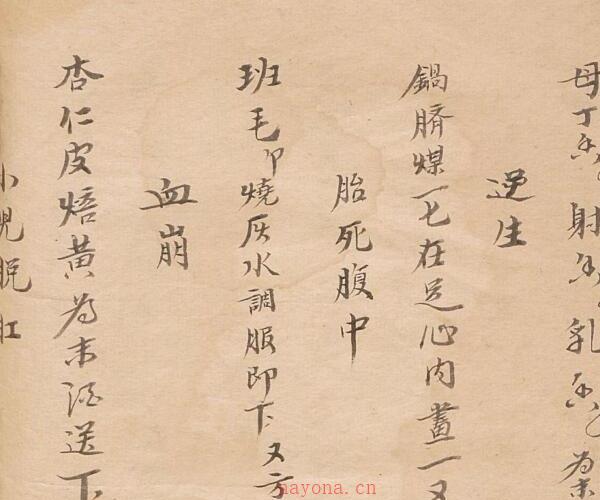 母丁香射香乳香為末
逆生
鍋臍煤一七在足心内畫一又
胎死腹中
班毛卩燒灰水調服即下又方
血崩
杏仁皮焙黃為末酒送下
小児脱肛
nayona.cn